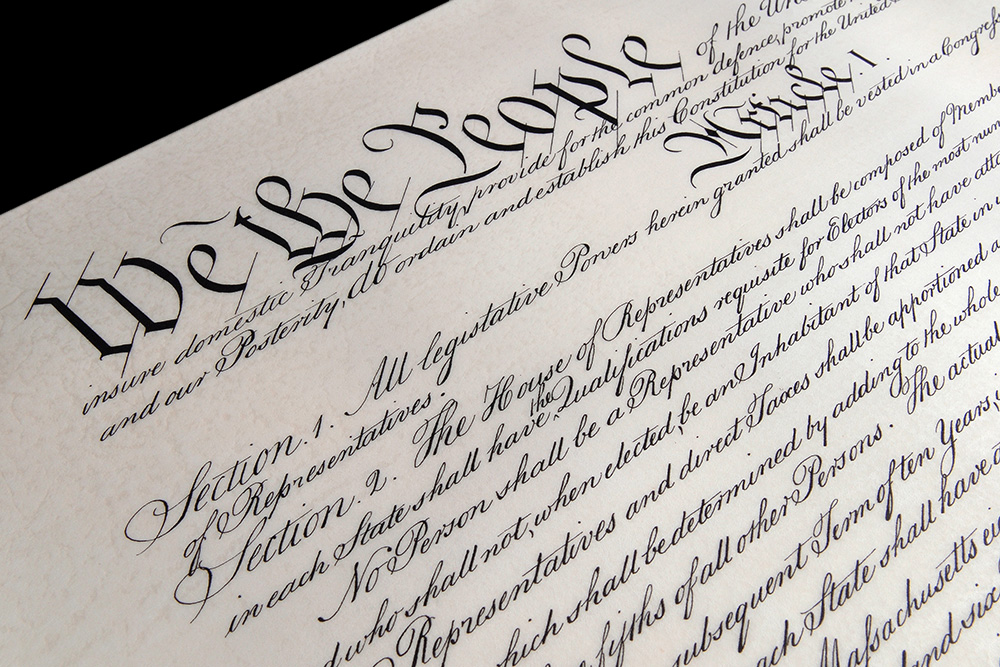 We the People of the Uni
insure domestic Tranquility, provide for the common defence, promote
and our Posterity, do ordain and establish this Constitution for the United
Article. I.
Section. 1. All legislative Powers herein granted shall be vested in a Congress
of Representatives.
Section. 2. The House of Representatives shall be composed of Membe
the
in each State shall have Qualifications requisite for Electors of the most num
No Person shall be a Representative who shall not have atta
d who shall not, when elected, be an Inhabitant of that State in
Representatives and direct Taxes shall be apportioned a
which shall be determined by adding to the whole
fifths of all other Persons. The actual
subsequent Term of ten Years,
each State shall have
Massachusetts
and six